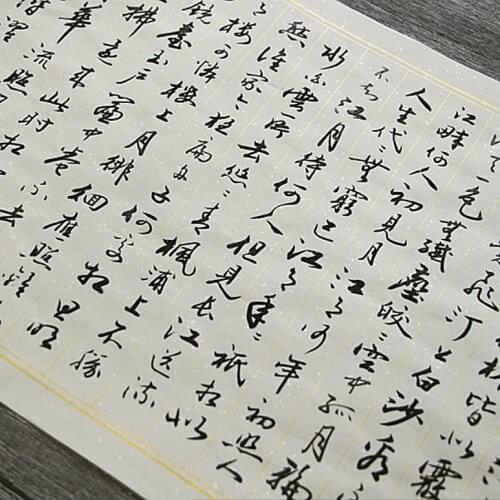 皆似霰
飛汀上白沙看
一色無纖塵皎皎空中孤月輪
江畔何人初見月江月何年初照人
人生代代無窮已江月年年祇相似
不知江月待何人但見長江送流
水白雲一片去悠悠青楓浦上不勝
愁誰家今夜扁舟子何處相思明
樓可憐樓上月徘徊應照離
鏡臺玉戶簾中卷不去
拂還來此時相
華流照